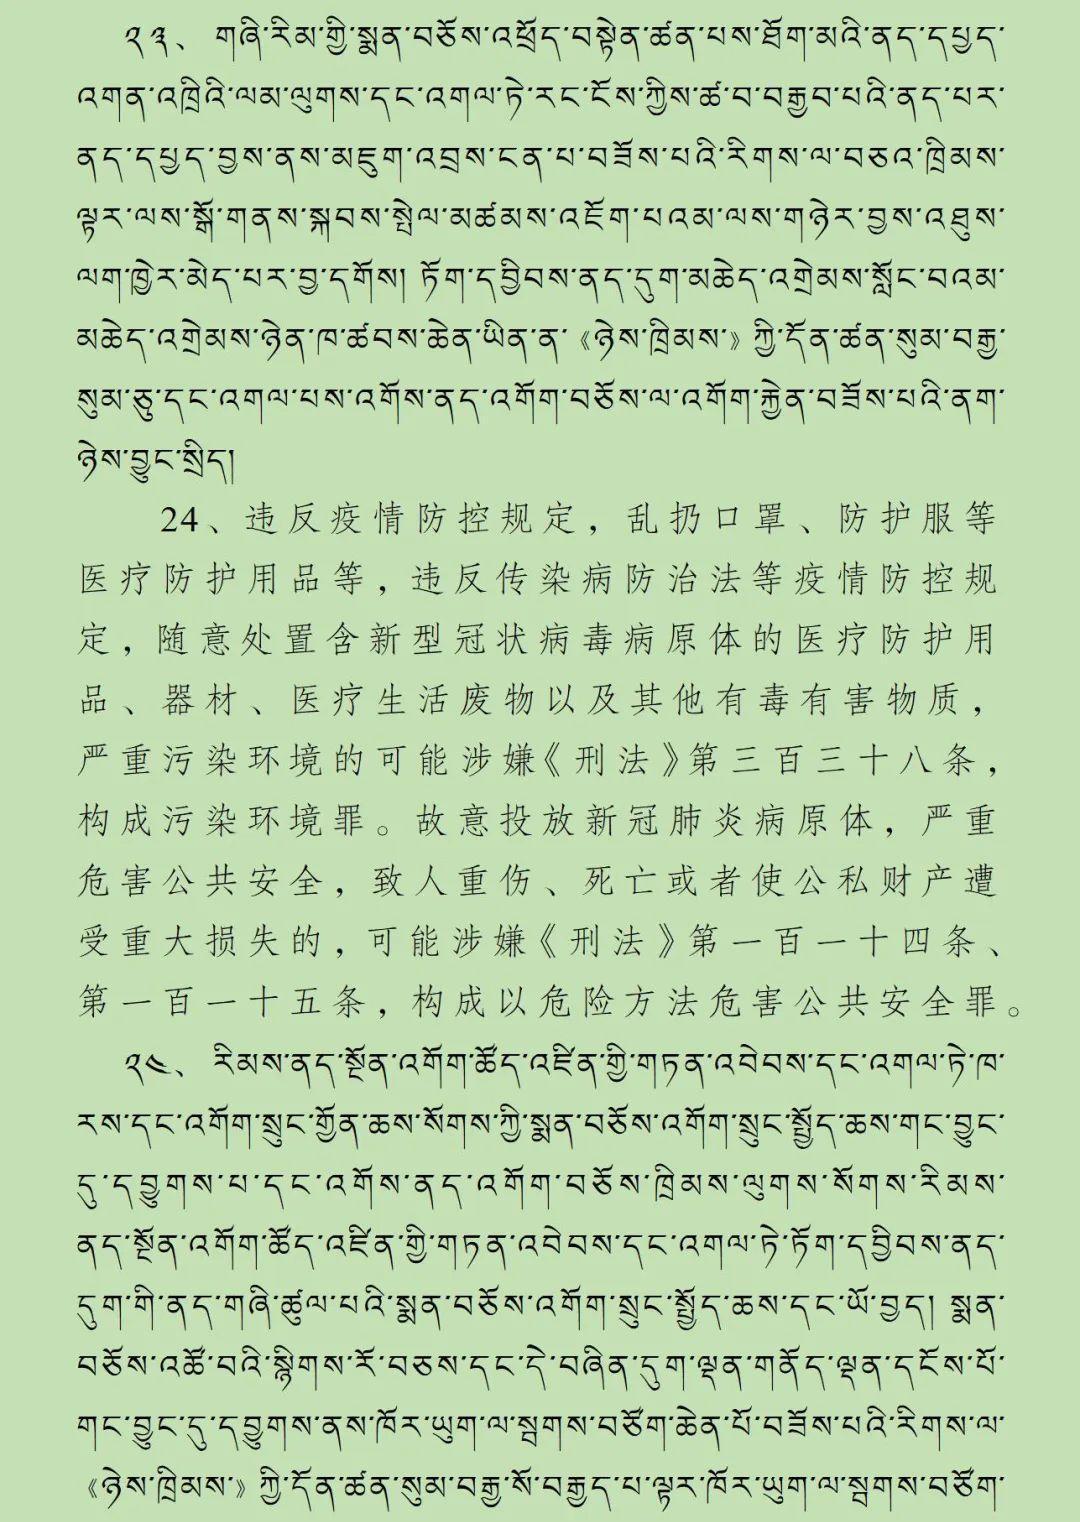 ༢༣、 གཞི་རིམ་གྱི་སྨན་བཅོས་འཕྲོད་བསྟེན་ཚན་པས་ཐོག་མའི་ནད་དཔྱད་
འགན་འཁྲིའི་ལམ་ལུགས་དང་འགལ་ཏེ་རང་ངོས་ཀྱིས་ཚ་བ་བརྒྱབ་པའི་ནད་པར་
ནད་དཔྱད་བྱས་ནས་མཇུག་འབྲས་ངན་པ་བཟོས་པའི་རིགས་ལ་བཅའ་ཁྲིམས་
ལྟར་ལས་སྒོ་གནས་སྐབས་སྤེལ་མཚམས་འཇོག་པའམ་ལས་གཉེར་བྱས་འཐུས་
ལག་ཁྱེར་མེད་པར་བྱ་དགོས། ཏོག་དབྱིབས་ནད་དུག་མཆེད་འགྲེམས་སློང་བའམ་
མཆེད་འགྲེམས་ཉེན་ཁ་ཚབས་ཆེན་ཡིན་ན་《ཉེས་ཁྲིམས་》ཀྱི་དོན་ཚན་སུམ་བརྒྱ་
སུམ་ཅུ་དང་འགལ་བས་འགོས་ནད་འགོག་བཅོས་ལ་འགོག་རྐྱེན་བཟོས་པའི་ནག་
ཉེས་བྱུང་སྲིད།
24、违反疫情防控规定，乱扔口罩、防护服等
医疗防护用品等，违反传染病防治法等疫情防控规
定，随意处置含新型冠状病毒病原体的医疗防护用
品、器材、医疗生活废物以及其他有毒有害物质，
严重污染环境的可能涉嫌《刑法》第三百三十八条，
构成污染环境罪。故意投放新冠肺炎病原体，严重
危害公共安全，致人重伤、死亡或者使公私财产遭
受重大损失的，可能涉嫌《刑法》第一百一十四条、
第一百一十五条，构成以危险方法危害公共安全罪。
༢༤、 རིམས་ནད་སྔོན་འགོག་ཚོད་འཛིན་གྱི་གཏན་འབེབས་དང་འགལ་ཏེ་ཁ་
རས་དང་འགོག་སྲུང་གྱོན་ཆས་སོགས་ཀྱི་སྨན་བཅོས་འགོག་སྲུང་སྤྱོད་ཆས་གང་བྱུང་
དུ་དབྱུགས་པ་དང་འགོས་ནད་འགོག་བཅོས་ཁྲིམས་ལུགས་སོགས་རིམས་
ནད་སྔོན་འགོག་ཚོད་འཛིན་གྱི་གཏན་འབེབས་དང་འགལ་ཏེ་ཏོག་དབྱིབས་ནད་
དུག་གི་ནད་གཞི་ཚུལ་པའི་སྨན་བཅོས་འགོག་སྲུང་སྤྱོད་ཆས་དང་ཡོ་བྱད། སྨན་
བཅོས་འཚོ་བའི་སྙིགས་རོ་བཅས་དང་དེ་བཞིན་དུག་ལྡན་གནོད་ལྡན་དངོས་པོ་
གང་བྱུང་དུ་དབྱུགས་ནས་ཁོར་ཡུག་ལ་སྦགས་བཙོག་ཆེན་པོ་བཟོས་པའི་རིགས་ལ་
《ཉེས་ཁྲིམས་》ཀྱི་དོན་ཚན་སུམ་བརྒྱ་སོ་བརྒྱད་པ་ལྟར་ཁོར་ཡུག་ལ་སྦགས་བཙོག་